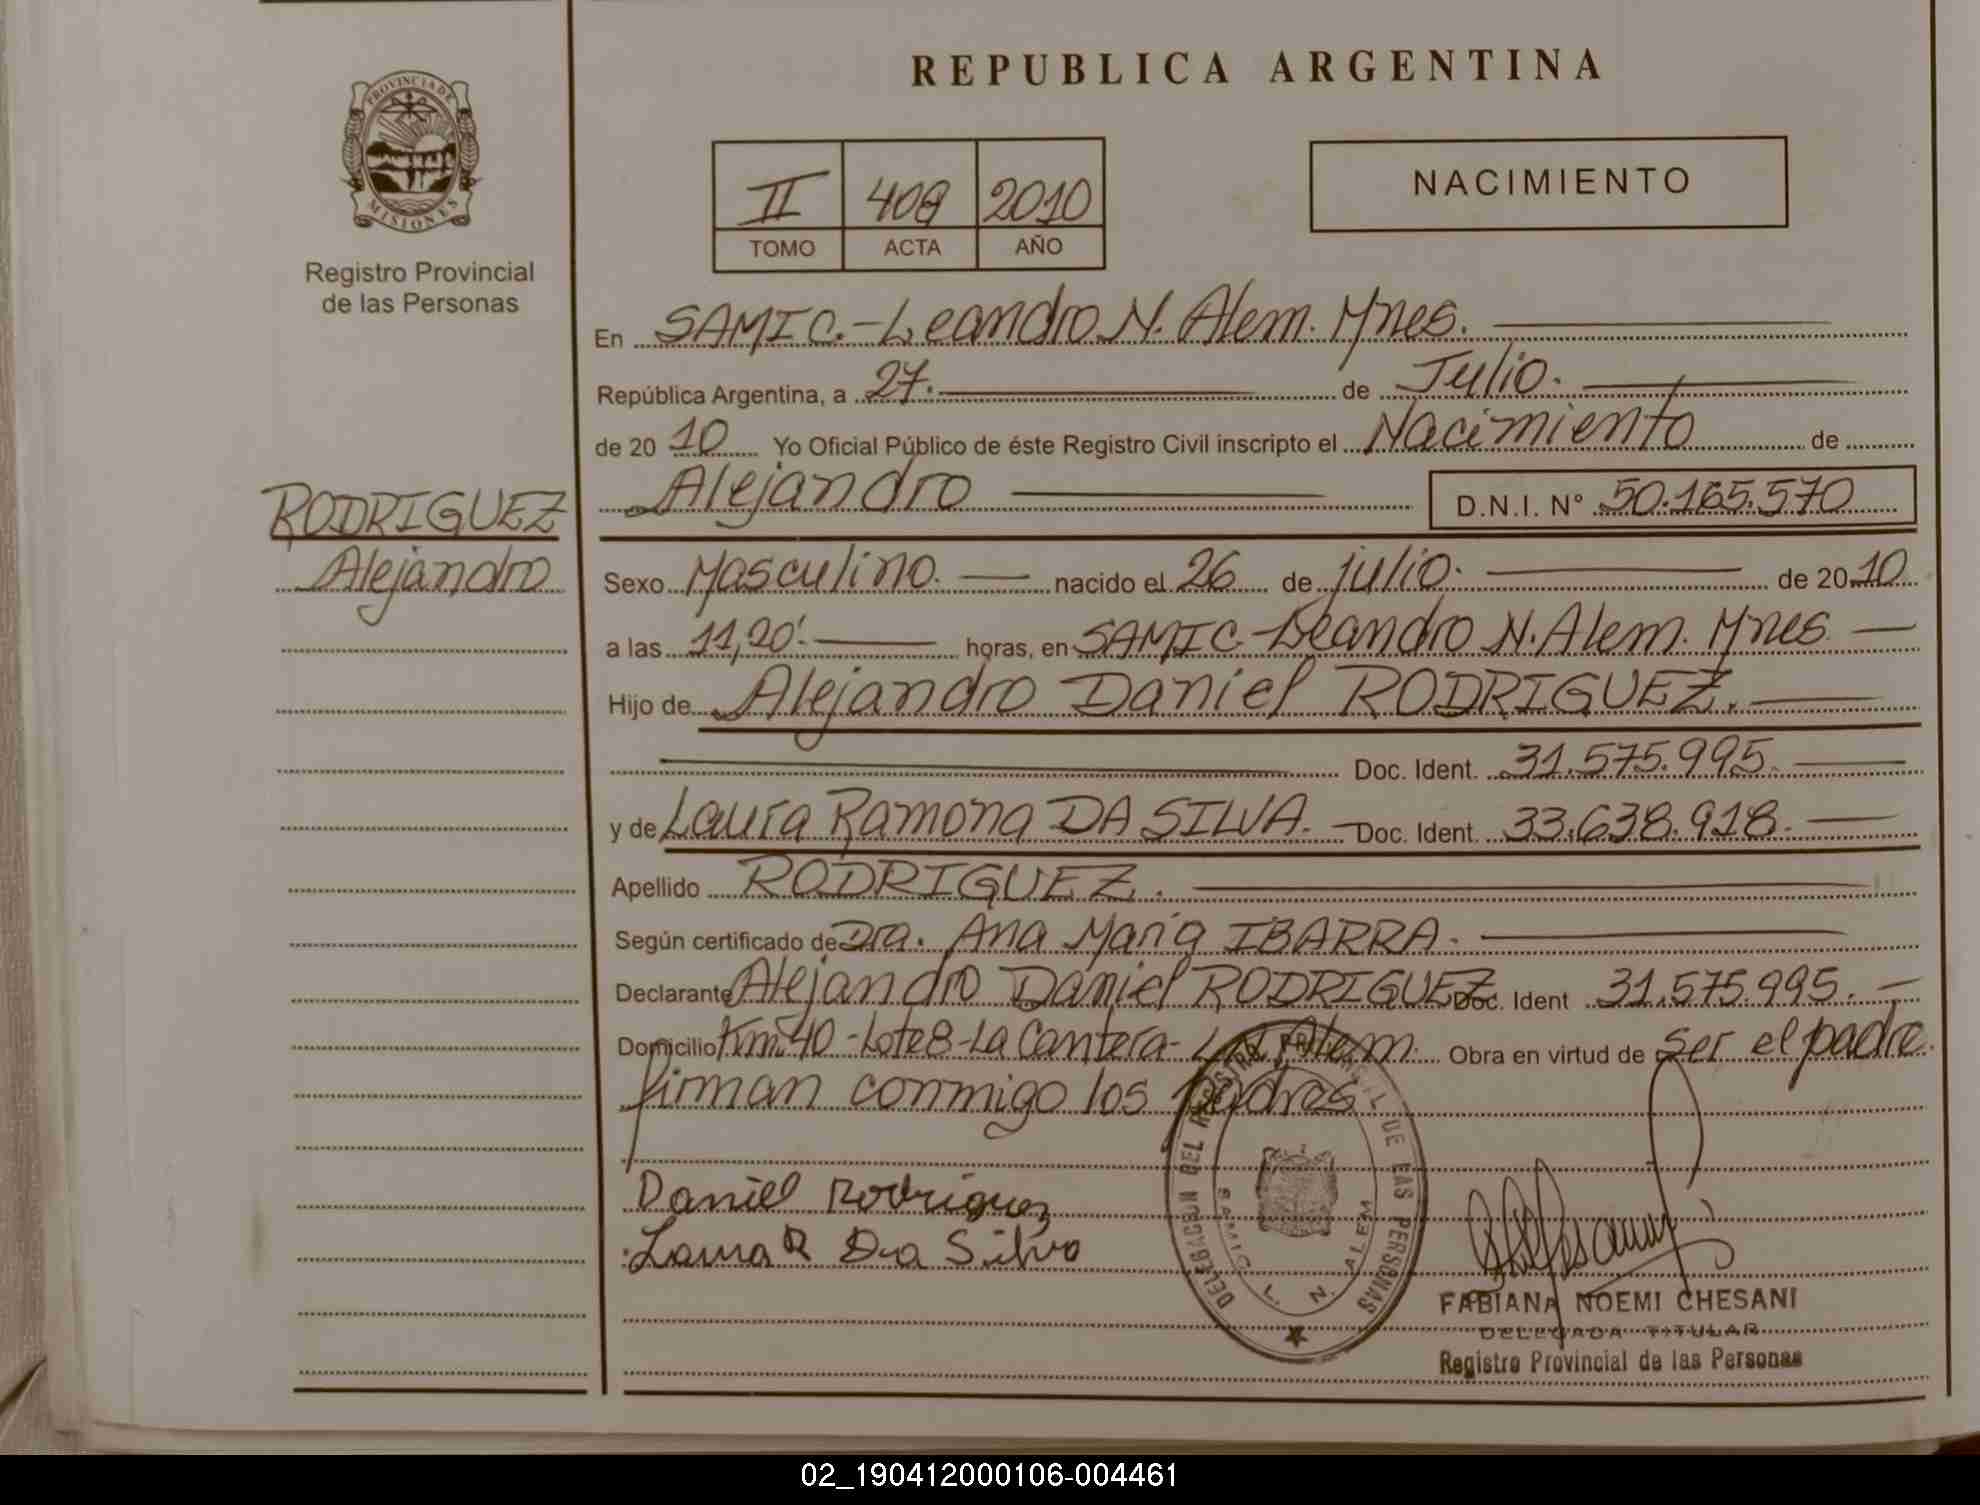 REPUBLICA ARGENTINA
PROVINCIA DE
MISIONES
Registro Provincial
de las Personas
II 409 2010
TOMO ACTA AÑO
NACIMIENTO
En SAMIC.-Leandro N. Alem. Mnes.
República Argentina, a 27. de Julio.
de 20 10 Yo Oficial Público de éste Registro Civil inscripto el Nacimiento de
Alejandro D.N.I. N° 50.165.570
RODRIGUEZ
Alejandro
Sexo Masculino. nacido el 26 de julio. de 20 10
a las 11,20'. horas, en SAMIC-Leandro N. Alem. Mnes.
Hijo de Alejandro Daniel RODRIGUEZ.
Doc. Ident. 31.575.995.
y de Laura Ramona DA SILVA. Doc. Ident. 33.638.918.
Apellido RODRIGUEZ.
Según certificado de Dra. Ana María IBARRA.
Declarante Alejandro Daniel RODRIGUEZ Doc. Ident 31.575.995.
Domicilio Km. 40 -Lote 8-La Cantera- L.N. Alem. Obra en virtud de ser el padre.
firman conmigo los Padres
Daniel Rodriguez
Laura R Da Silva
DELEGACION DEL REGISTRO PROVINCIAL DE LAS PERSONAS
SAMIC L. N. ALEM
FABIANA NOEMI CHESANI
DELEGADA TITULAR
Registro Provincial de las Personas
02_190412000106-004461